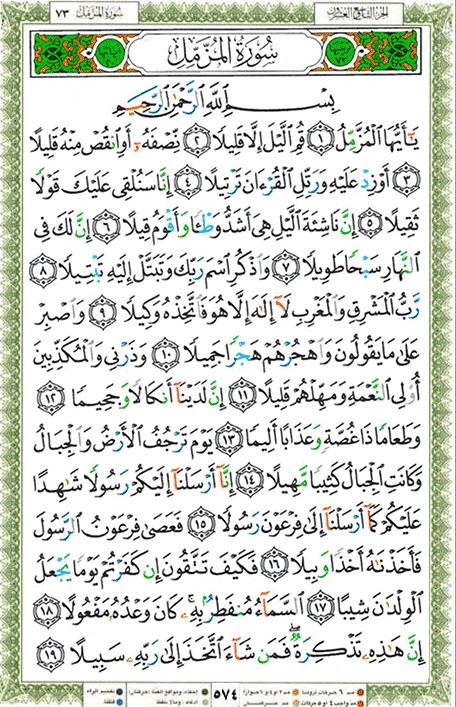 سُورَةُ المُزَّمِّل ٧٣ الجزء التاسع والعشرون
سُورَةُ الْمُزَّمِّلِ
بِسْمِ اللَّهِ الرَّحْمَٰنِ الرَّحِيمِ
يَٰٓأَيُّهَا الْمُزَّمِّلُ ١ قُمِ الَّيْلَ إِلَّا قَلِيلًا ٢ نِّصْفَهُۥٓ أَوِ انقُصْ مِنْهُ قَلِيلًا
٣ أَوْ زِدْ عَلَيْهِ وَرَتِّلِ الْقُرْءَانَ تَرْتِيلًا ٤ إِنَّا سَنُلْقِى عَلَيْكَ قَوْلًا
ثَقِيلًا ٥ إِنَّ نَاشِئَةَ الَّيْلِ هِىَ أَشَدُّ وَطْـًٔا وَأَقْوَمُ قِيلًا ٦ إِنَّ لَكَ فِى
النَّهَارِ سَبْحًا طَوِيلًا ٧ وَاذْكُرِ اسْمَ رَبِّكَ وَتَبَتَّلْ إِلَيْهِ تَبْتِيلًا ٨
رَّبُّ الْمَشْرِقِ وَالْمَغْرِبِ لَآ إِلَٰهَ إِلَّا هُوَ فَاتَّخِذْهُ وَكِيلًا ٩ وَاصْبِرْ
عَلَىٰ مَا يَقُولُونَ وَاهْجُرْهُمْ هَجْرًا جَمِيلًا ١٠ وَذَرْنِى وَالْمُكَذِّبِينَ
أُو۟لِى النَّعْمَةِ وَمَهِّلْهُمْ قَلِيلًا ١١ إِنَّ لَدَيْنَآ أَنكَالًا وَجَحِيمًا ١٢
وَطَعَامًا ذَا غُصَّةٍ وَعَذَابًا أَلِيمًا ١٣ يَوْمَ تَرْجُفُ الْأَرْضُ وَالْجِبَالُ
وَكَانَتِ الْجِبَالُ كَثِيبًا مَّهِيلًا ١٤ إِنَّآ أَرْسَلْنَآ إِلَيْكُمْ رَسُولًا شَٰهِدًا
عَلَيْكُمْ كَمَآ أَرْسَلْنَآ إِلَىٰ فِرْعَوْنَ رَسُولًا ١٥ فَعَصَىٰ فِرْعَوْنُ الرَّسُولَ
فَأَخَذْنَٰهُ أَخْذًا وَبِيلًا ١٦ فَكَيْفَ تَتَّقُونَ إِن كَفَرْتُمْ يَوْمًا يَجْعَلُ
الْوِلْدَٰنَ شِيبًا ١٧ السَّمَآءُ مُنفَطِرٌۢ بِهِۦ ۚ كَانَ وَعْدُهُۥ مَفْعُولًا ١٨
إِنَّ هَٰذِهِۦ تَذْكِرَةٌ ۖ فَمَن شَآءَ اتَّخَذَ إِلَىٰ رَبِّهِۦ سَبِيلًا ١٩
٥٧٤